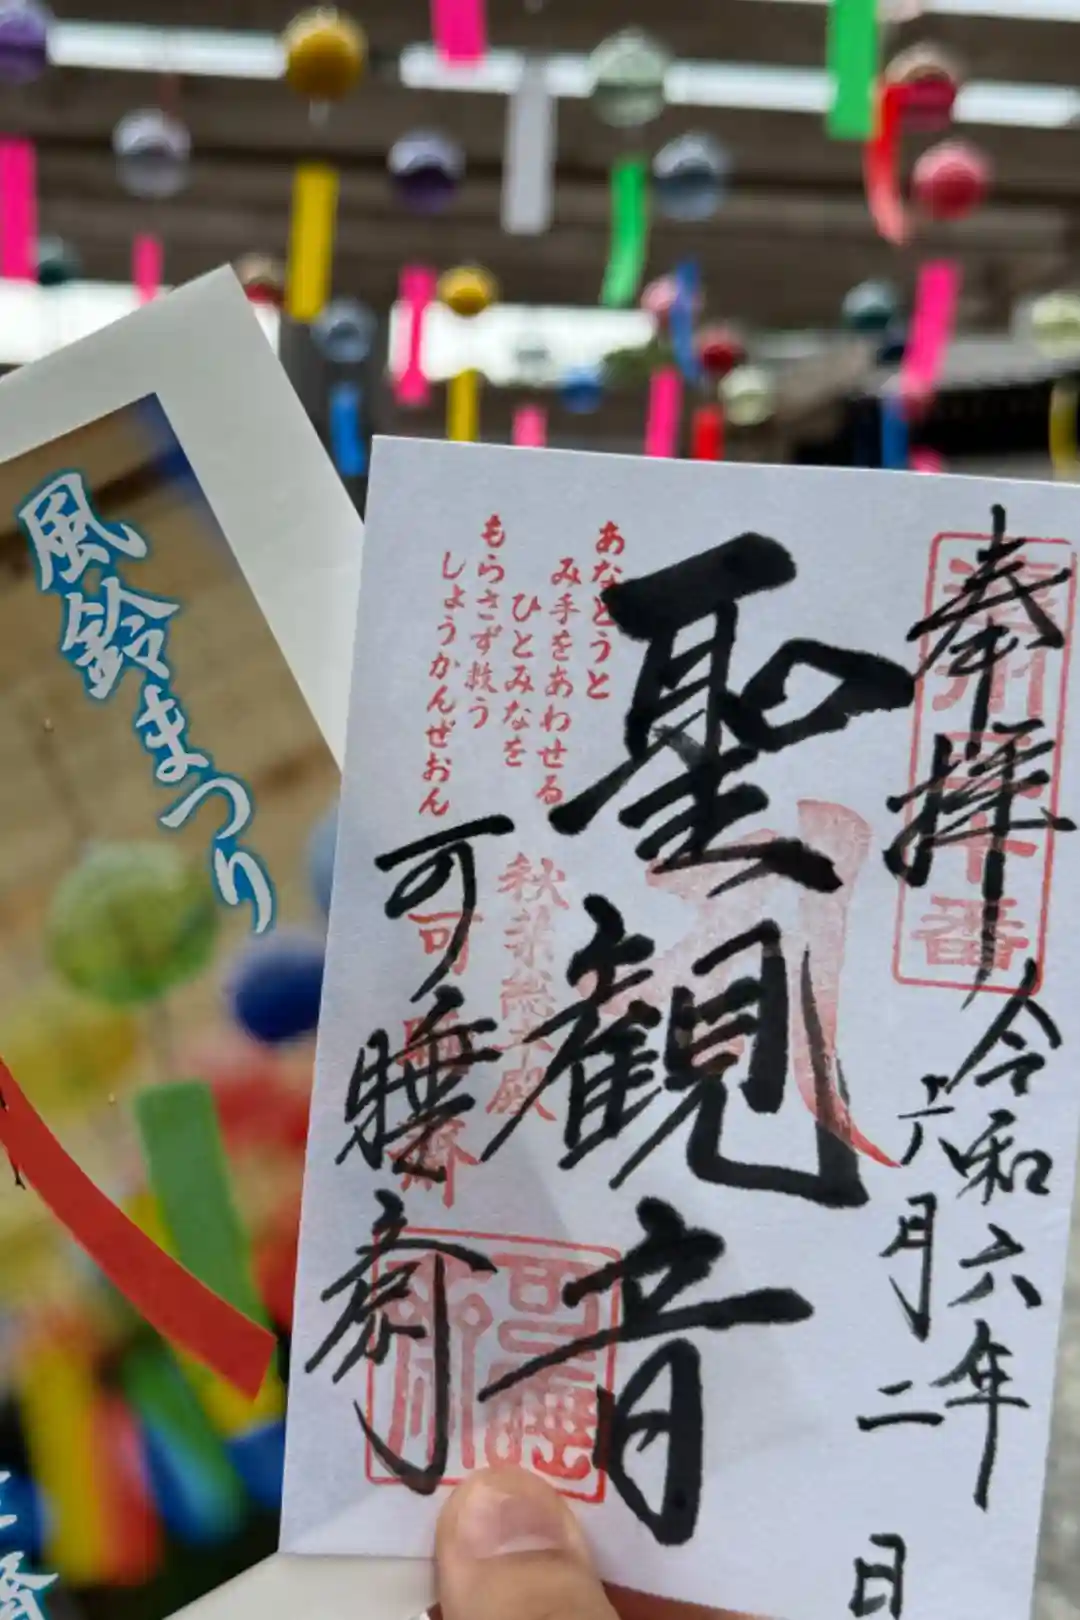 風鈴まつり
奉拝
令和六年
六月二日
聖観音
あなとうと
み手をあわせる
ひとみなを
もらさず救う
しょうかんぜおん
秋葉総本殿
可睡斎
可睡斎